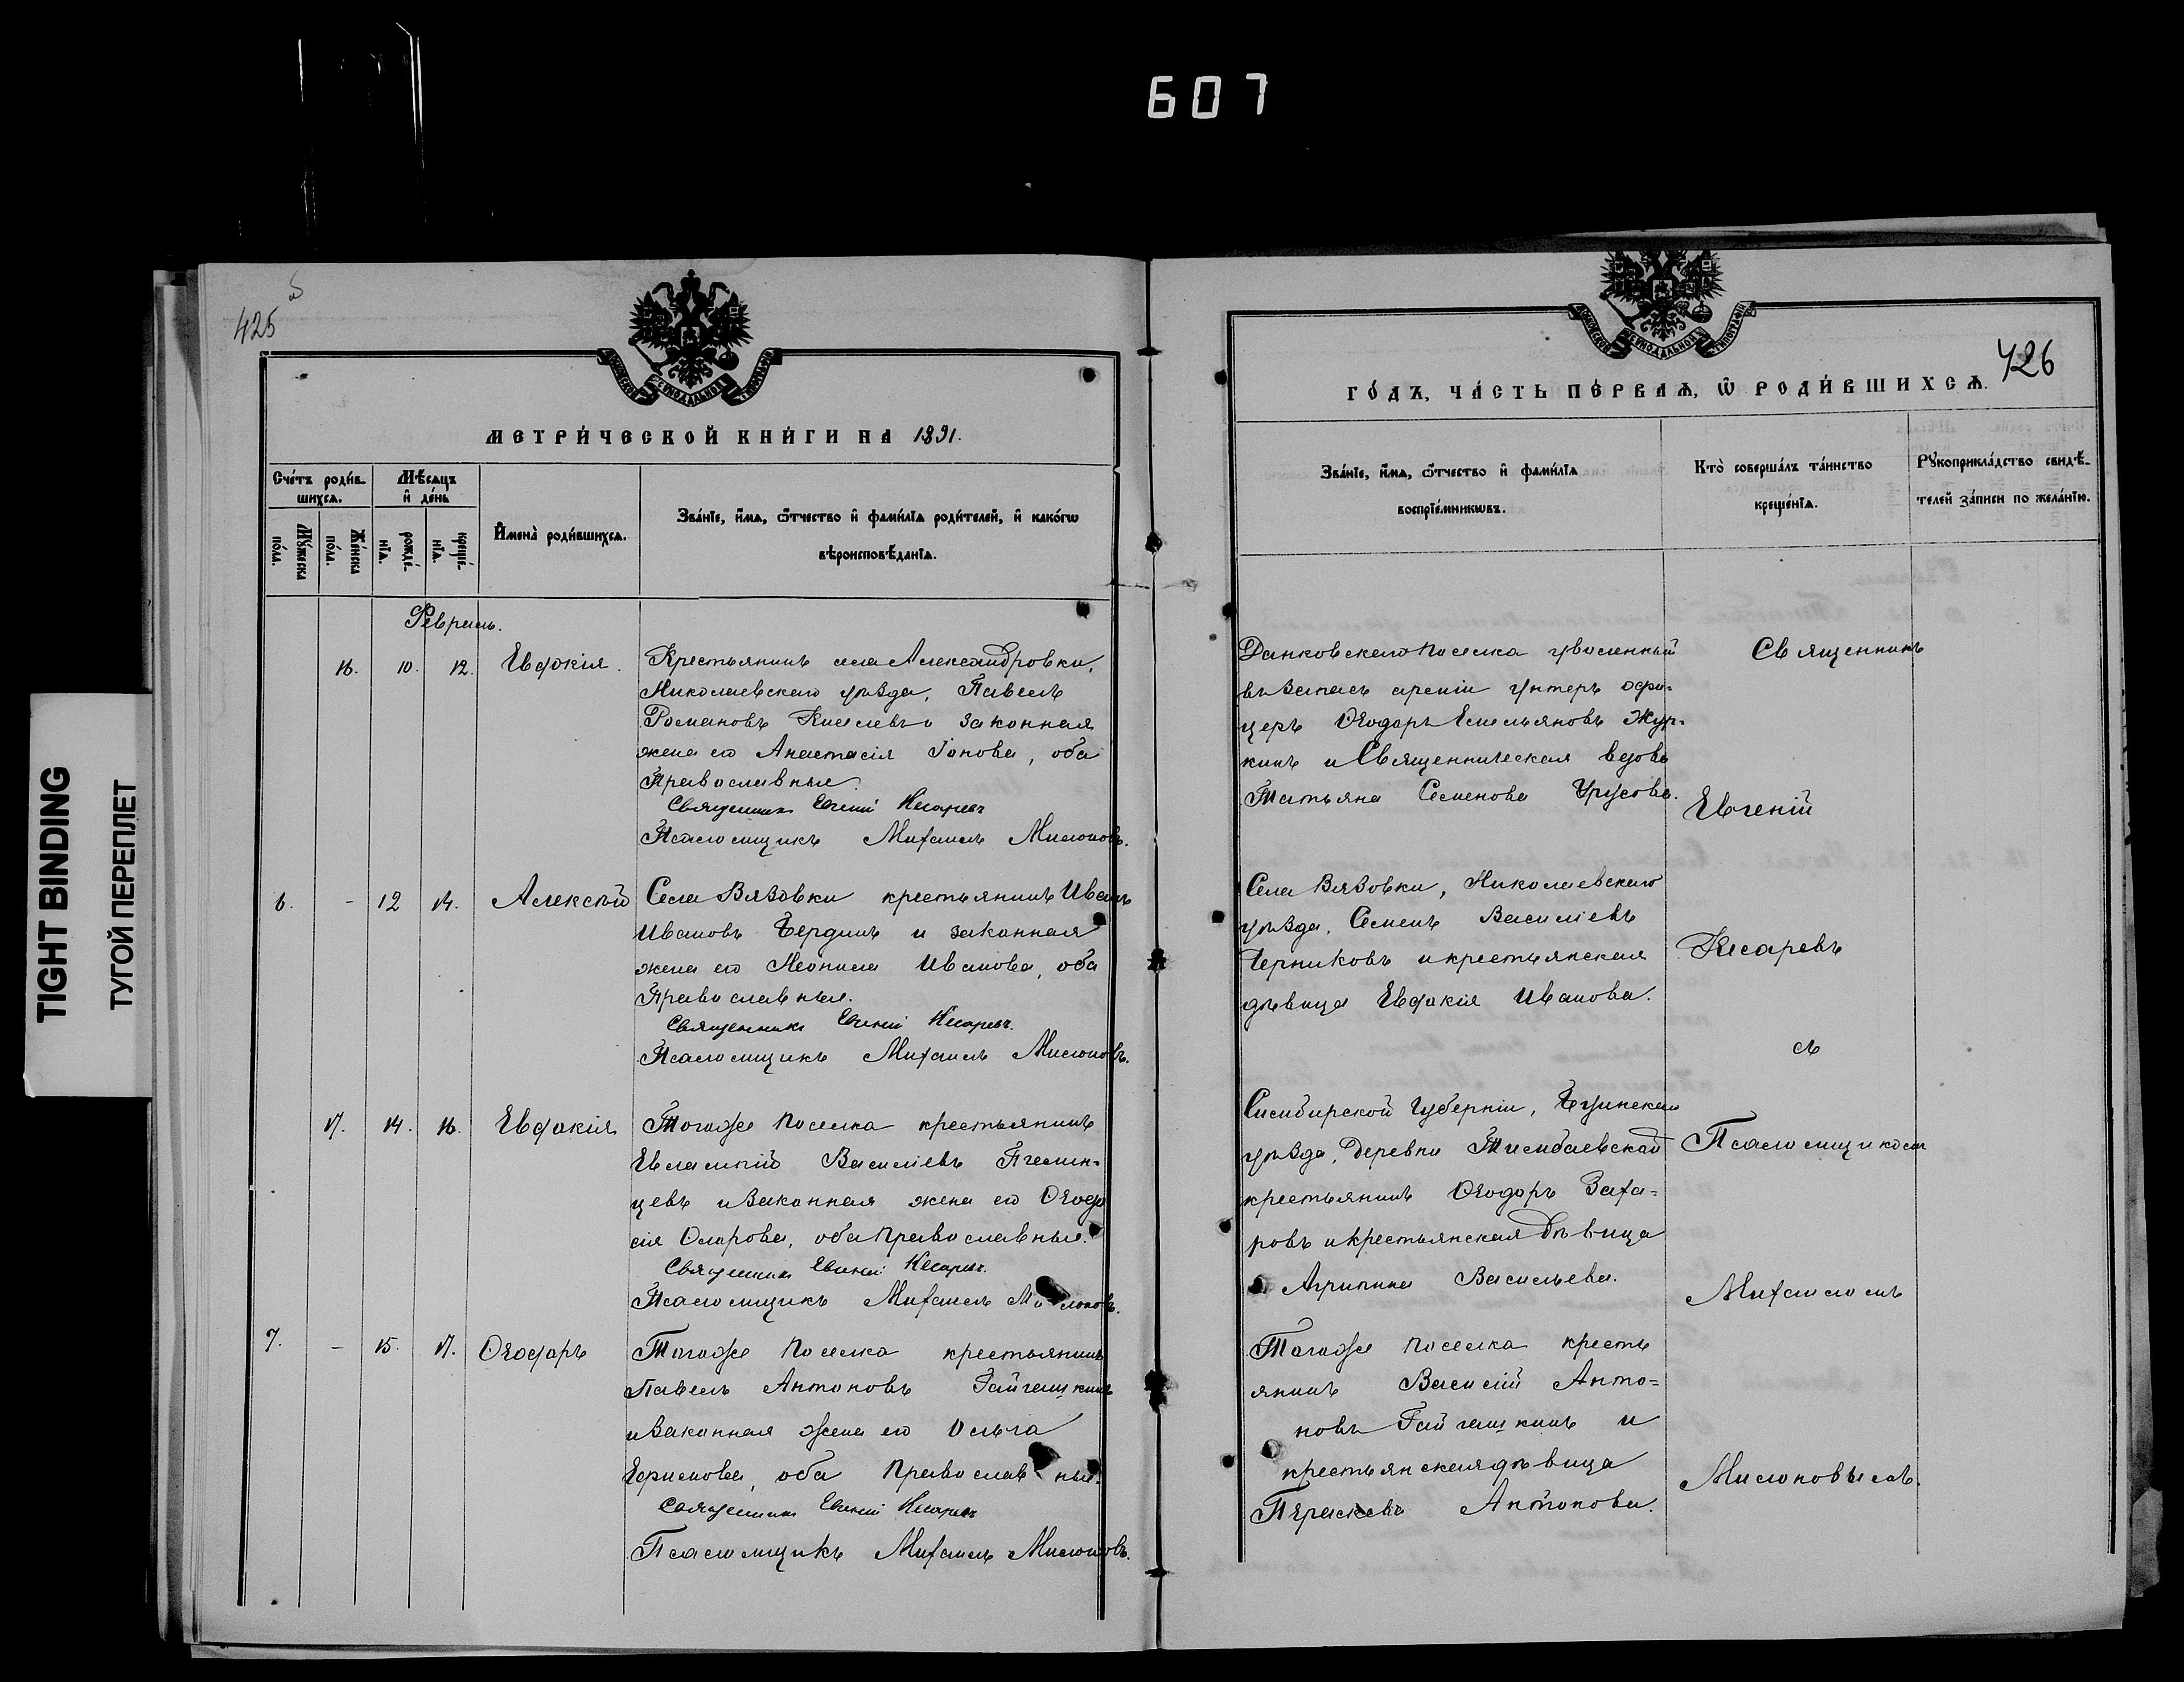 607
TIGHT BINDING
ТУГОЙ ПЕРЕПЛЕТ
425
МЕТРИ́ЧЕСКОЙ КНИ́ГИ НА 1891.
Сче́тъ роди́в-
шихсѧ.
Мѣ́сѧцъ
и҆ де́нь
Мꙋ́жеска
по́ла.
Же́нска
по́ла.
рожде́-
нїѧ.
креще́-
нїѧ.
И҆мена̀ роди́вшихсѧ.
Зва́нїе, и҆́мѧ, ѻ҆́тчество и҆ фами́лїѧ роди́телей, и҆ како́гѡ
вѣроисповѣ́данїѧ.
Февраль.
16. 10. 12. Евдокія.
Крестьянинъ села Александровки,
Николаевскаго уѣзда, Павелъ
Романовъ Киселевъ и законная
жена его Анастасія Іонова, оба
Православные.
Священникъ Евгеній Кесаревъ
Псаломщикъ Михаилъ Милоновъ.
6. - 12 14. Алексѣй
Села Вязовки крестьянинъ Иванъ
Ивановъ Бердинъ и законная
жена его Неонила Иванова, оба
Православные.
Священникъ Евгеній Кесаревъ.
Псаломщикъ Михаилъ Милоновъ.
17. 14. 16. Евдокія
Тогоже поселка крестьянинъ
Евлампій Василіевъ Пчелин-
цевъ и законная жена его Ѳеодо
сія Оларова, оба Православные.
Священникъ Евгеній Кесаревъ.
Псаломщикъ Михаилъ Милоновъ.
7. - 15. 17. Ѳеодоръ
Тогоже поселка крестьянинъ
Павелъ Антоновъ Гайчашкинъ
и законная жена его Ольга
Ефимова, оба Православные.
Священникъ Евгеній Кесаревъ
Псаломщикъ Михаилъ Милоновъ.
426
ГО́ДЪ, ЧА́СТЬ ПЕ́РВАѦ, Ѡ҆ РОДИ́ВШИХСѦ.
Зва́нїе, и҆́мѧ, ѻ҆́тчество и҆ фами́лїѧ
воспрїе́мникѡвъ.
Кто̀ соверша́лъ та́инство
креще́нїѧ.
Рꙋкоприкла́дство свидѣ́-
телей за́писи по жела́нїю.
Данковскаго поселка уволенный
въ запасъ арміи унтеръ офи-
церъ Ѳеодоръ Емельяновъ Жур-
кинъ и Священническая вдова
Татьяна Семенова Урусова.
Села Вязовки, Николаевскаго
уѣзда, Семенъ Василіевъ
Черниковъ и крестьянская
дѣвица Евдокія Иванова.
Симбирской губерніи,
уѣзда, деревни Тимбаевской
крестьянинъ Ѳеодоръ Заха-
ровъ и крестьянская дѣвица
Агрипина Васильева.
Тогоже поселка кресть
янинъ Василій Анто-
новъ Гайчашкинъ и
крестьянская дѣвица
Параскева Антонова.
Священникъ
Евгеній
Кесаревъ
съ
Псаломщикомъ
Михаиломъ
Милоновымъ.